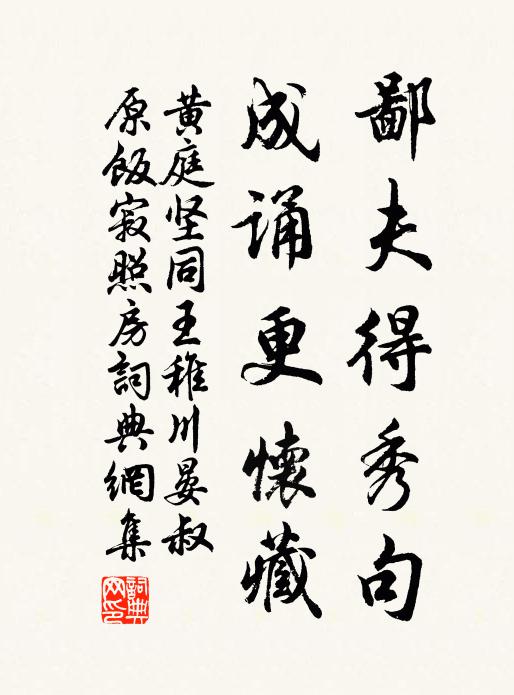 鄙夫得秀句
成诵更懷藏
黄庭坚同王稚川晏叔
原飯寂照房詞典網集
詞典網印